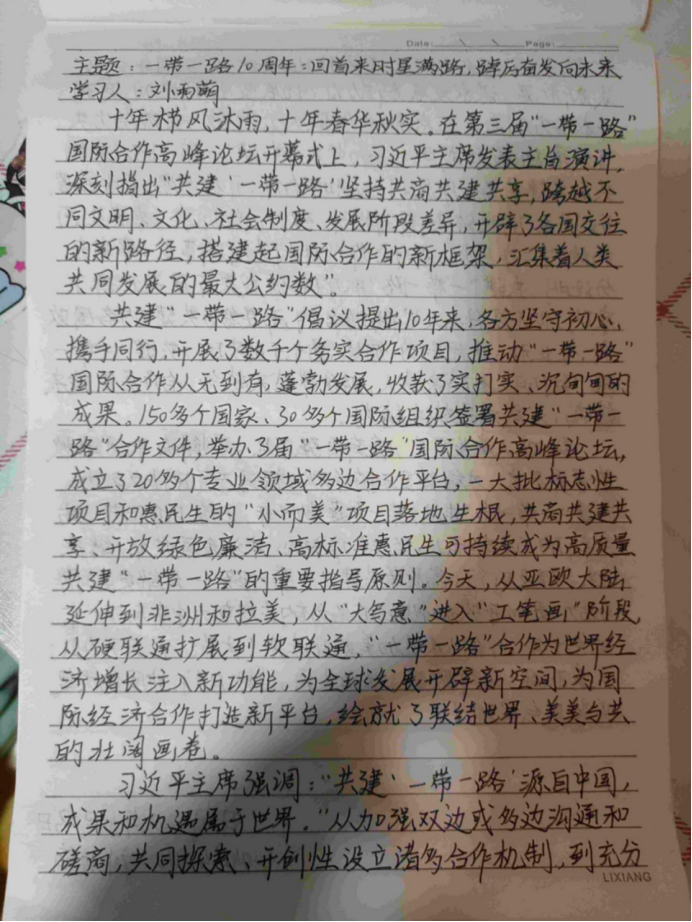 Date: \ \ Page:
主题：一带一路10周年：回首来时星满路，踔厉奋发向未来
学习人：刘雨萌
十年栉风沐雨，十年春华秋实。在第三届“一带一路”
国际合作高峰论坛开幕式上，习近平主席发表主旨演讲，
深刻指出“共建‘一带一路’坚持共商共建共享，跨越不
同文明、文化、社会制度、发展阶段差异，开辟了各国交往
的新路径，搭建起国际合作的新框架，汇集着人类
共同发展的最大公约数”。
共建“一带一路”倡议提出10年来，各方坚守初心，
携手同行，开展了数千个务实合作项目，推动“一带一路”
国际合作从无到有，蓬勃发展，收获了实打实、沉甸甸的
成果。150多个国家、30多个国际组织签署共建“一带一
路”合作文件，举办3届“一带一路”国际合作高峰论坛，
成立了20多个专业领域多边合作平台，一大批标志性
项目和惠民生的“小而美”项目落地生根，共商共建共
享、开放绿色廉洁、高标准惠民生可持续成为高质量
共建“一带一路”的重要指导原则。今天，从亚欧大陆
延伸到非洲和拉美，从“大写意”进入“工笔画”阶段，
从硬联通扩展到软联通，“一带一路”合作为世界经
济增长注入新功能，为全球发展开辟新空间，为国
际经济合作打造新平台，绘就了联结世界、美美与共
的壮阔画卷。
习近平主席强调：“共建‘一带一路’源自中国，
成果和机遇属于世界。”从加强双边或多边沟通和
磋商，共同探索、开创性设立诸多合作机制，到充分
LIXIANG